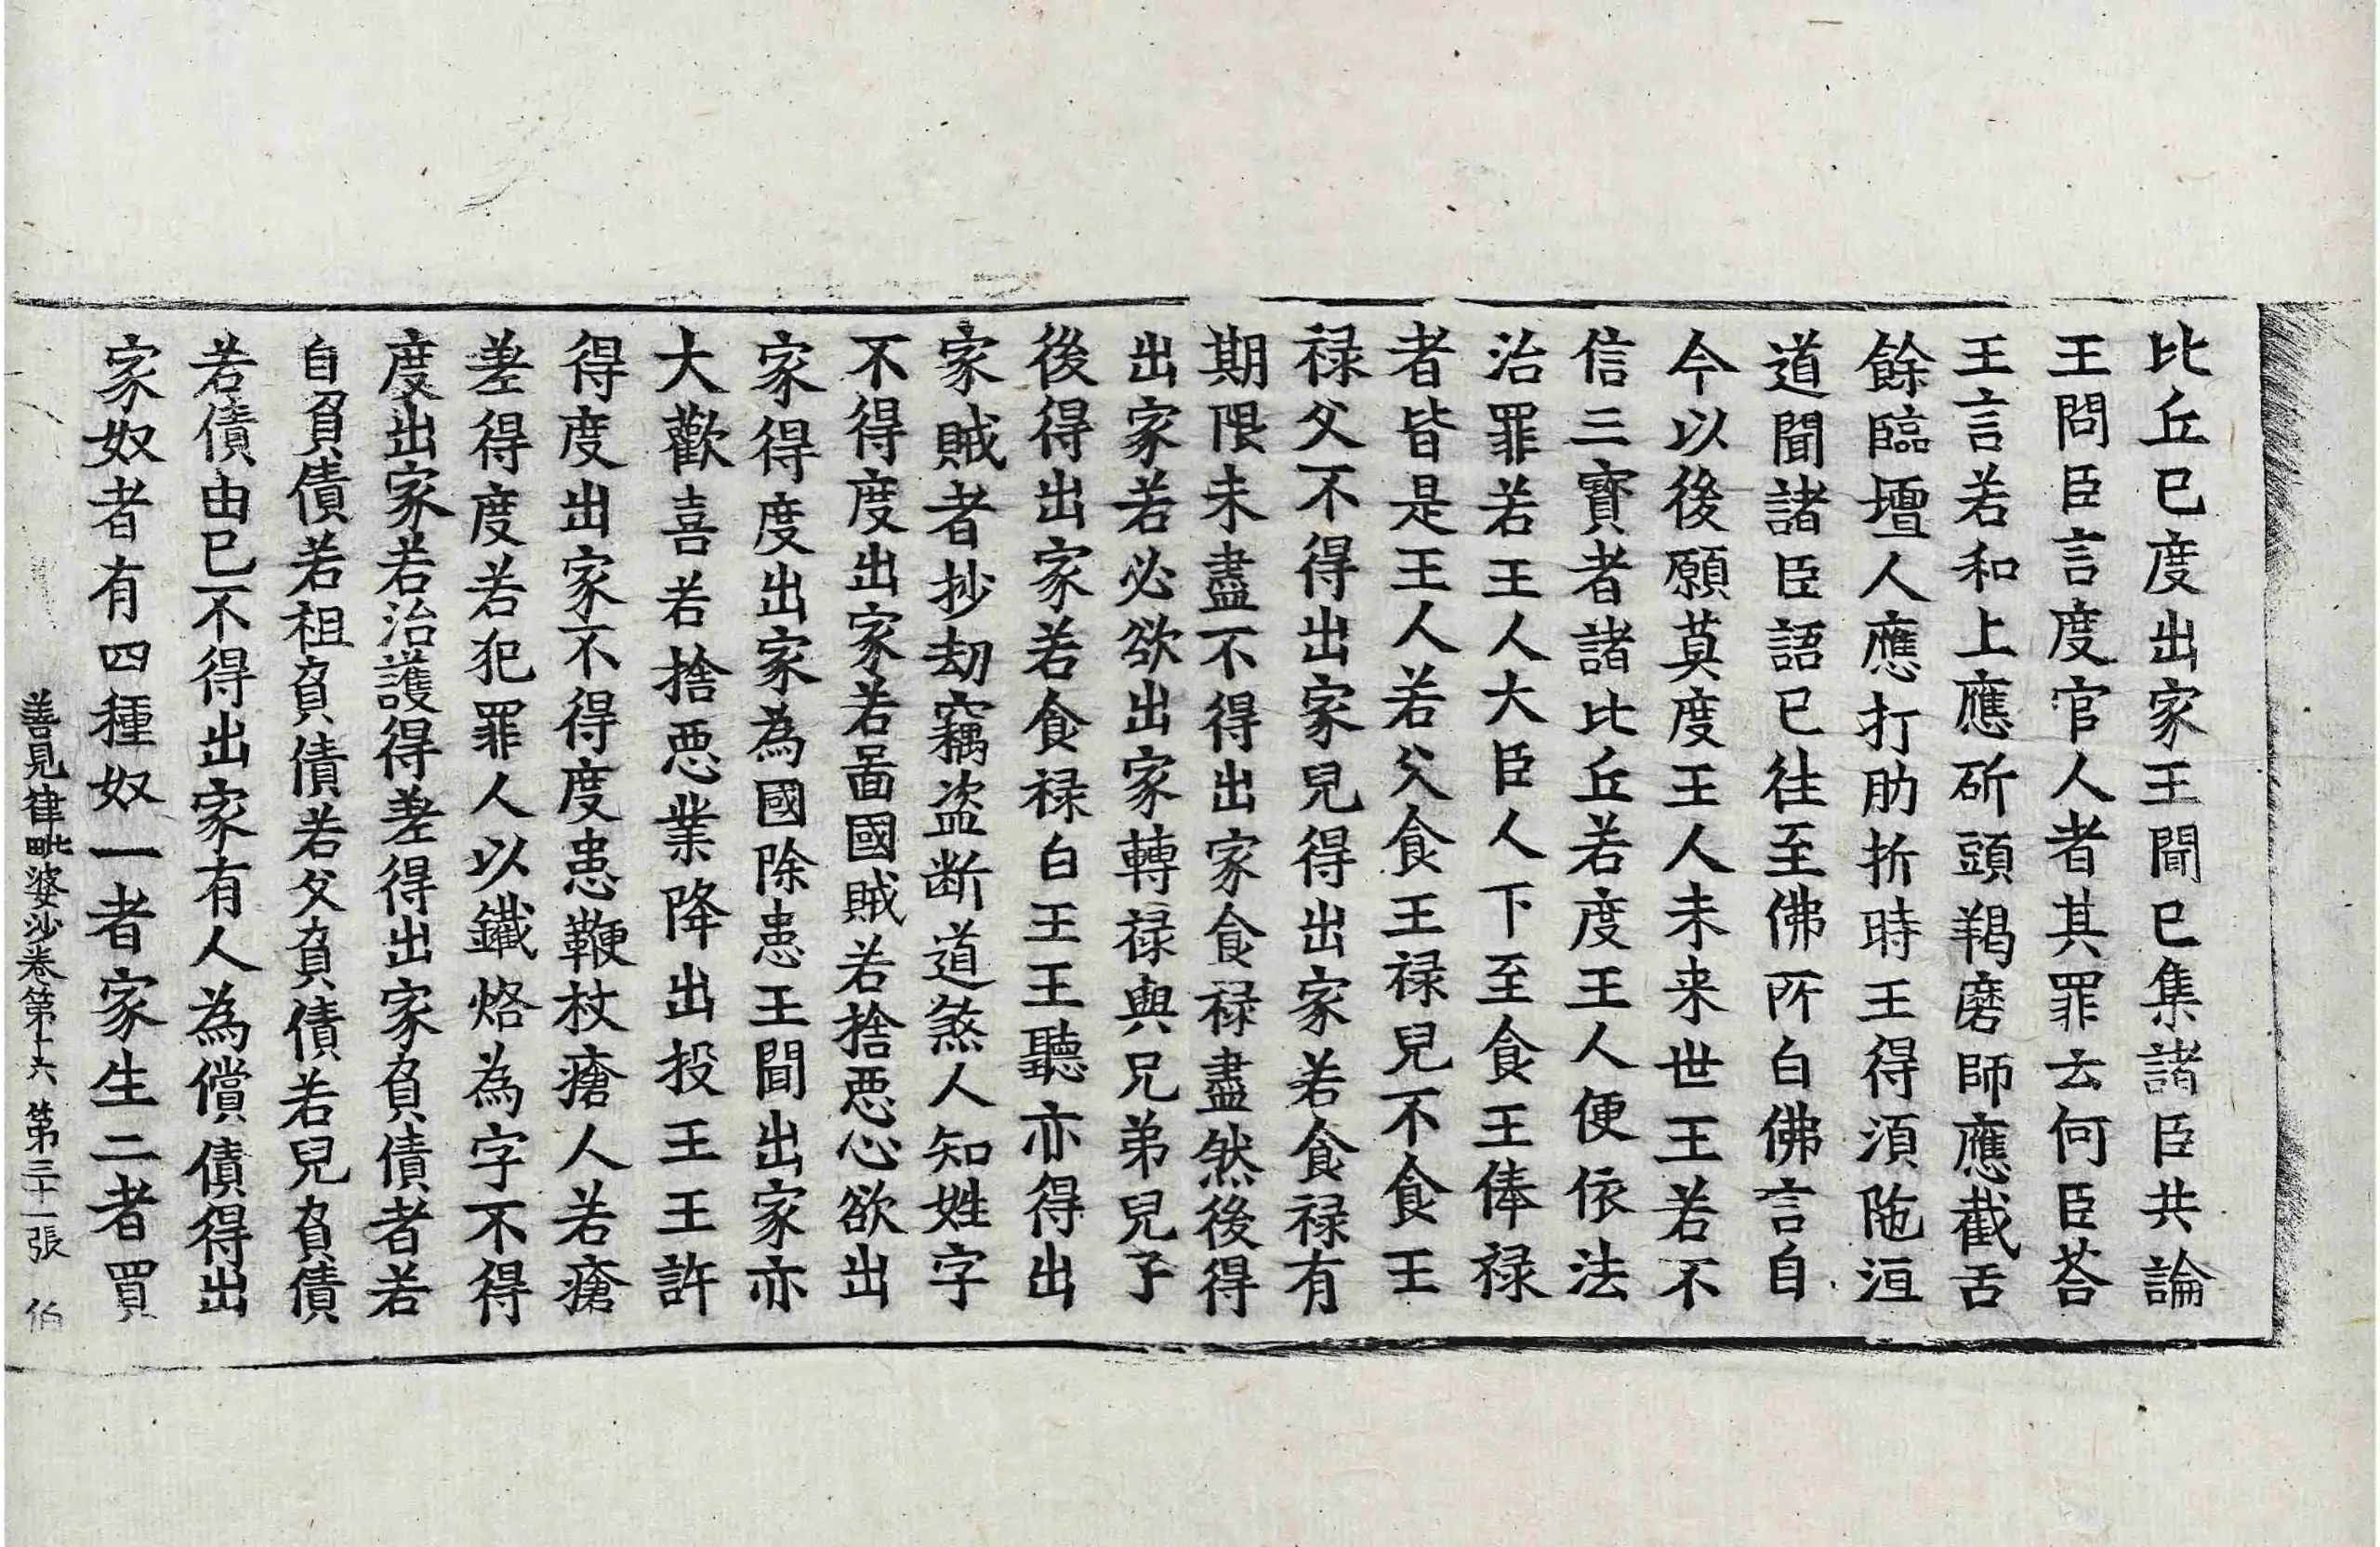 比丘已度出家王聞已集諸臣共論
王問臣言度官人者其罪云何臣荅
王言若和上應斫頭羯磨師應截舌
餘臨壇人應打肋折時王得須陁洹
道聞諸臣語已往至佛所白佛言自
今以後願莫度王人未来世王若不
信三寶者諸比丘若度王人便依法
治罪若王人大臣人下至食王俸禄
者皆是王人若父食王禄兒不食王
禄父不得出家兒得出家若食禄有
期限未盡不得出家食禄盡然後得
出家若必欲出家轉禄與兄弟兒子
後得出家若食禄白王王聽亦得出
家賊者抄劫竊盗断道煞人知姓字
不得度出家若啚國賊若捨惡心欲出
家得度出家為國除患王聞出家亦
大歡喜若捨惡業降出投王王許
得度出家不得度患鞭杖瘡人若瘡
差得度若犯罪人以鐵烙為字不得
度出家若治護得差得出家負債者若
自負債若祖負債若父負債若兒負債
若債由已不得出家有人為償債得出
家奴者有四種奴一者家生二者買
善見律毗婆沙卷第十六 第三十一張 伯